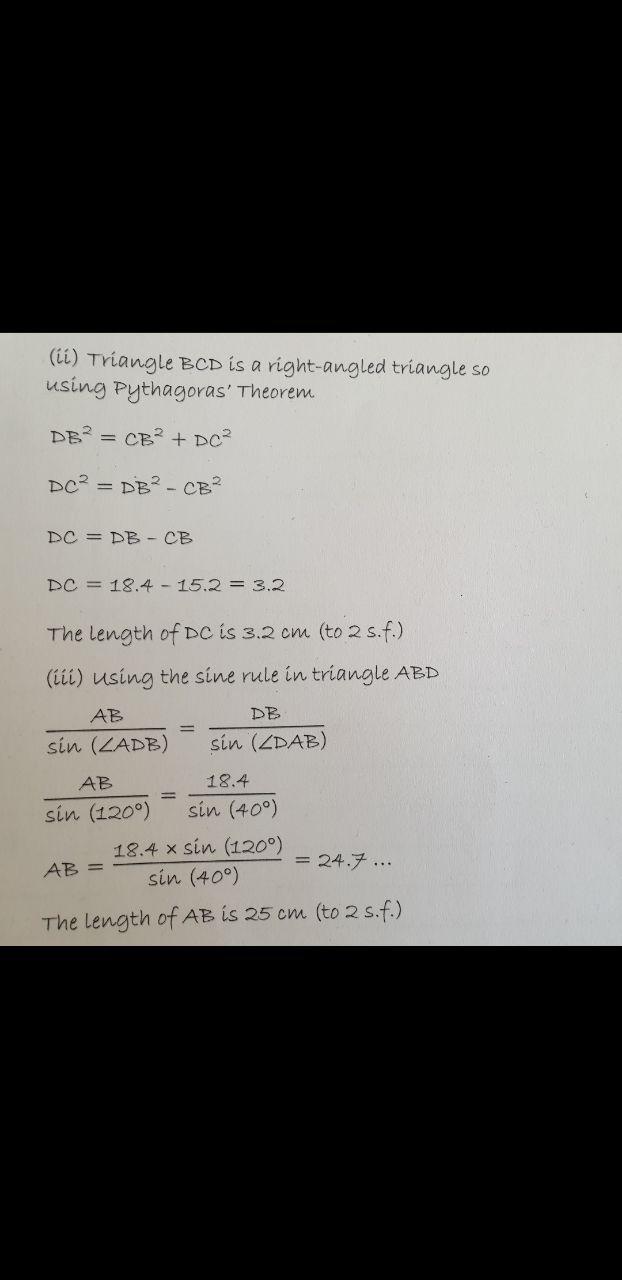 (ii) Triangle BCD is a right-angled triangle so
using Pythagoras' Theorem
DB² = CB² + DC²
DC² = DB² - CB²
DC = DB - CB
DC = 18.4 - 15.2 = 3.2
The length of DC is 3.2 cm (to 2 s.f.)
(iii) Using the sine rule in triangle ABD
AB / sin (∠ADB) = DB / sin (∠DAB)
AB / sin (120°) = 18.4 / sin (40°)
AB = 18.4 x sin (120°) / sin (40°) = 24.7 ...
The length of AB is 25 cm (to 2 s.f.)